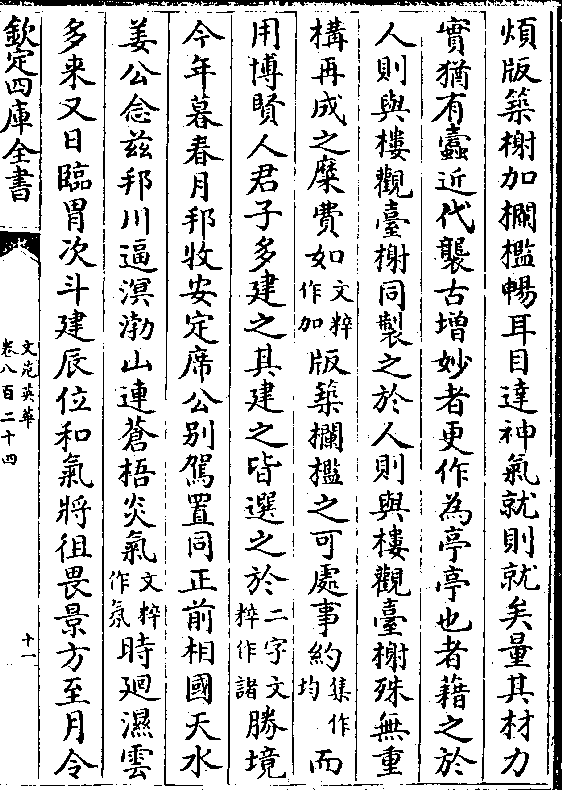 煩版築榭加欄檻暢耳目達神氣就則就矣量其材力
實猶有蠧近代襲古增妙者更作為亭亭也者藉之於
人則與樓觀臺榭同製之於人則與樓觀臺榭殊無重
構再成之糜費如文粹作加版築欄檻之可處事約集作均而
用博賢人君子多建之其建之皆選之於二字文粹作諸勝境
今年暮春月邦牧安定席公别駕置同正前相國天水
姜公念兹邦川逼溟渤山連蒼梧炎氣文粹作氛時廻濕雲
多来又日臨胃次斗建辰位和氣將徂畏景方至月令
欽定四庫全書
文苑英華
卷八百二十四
十一